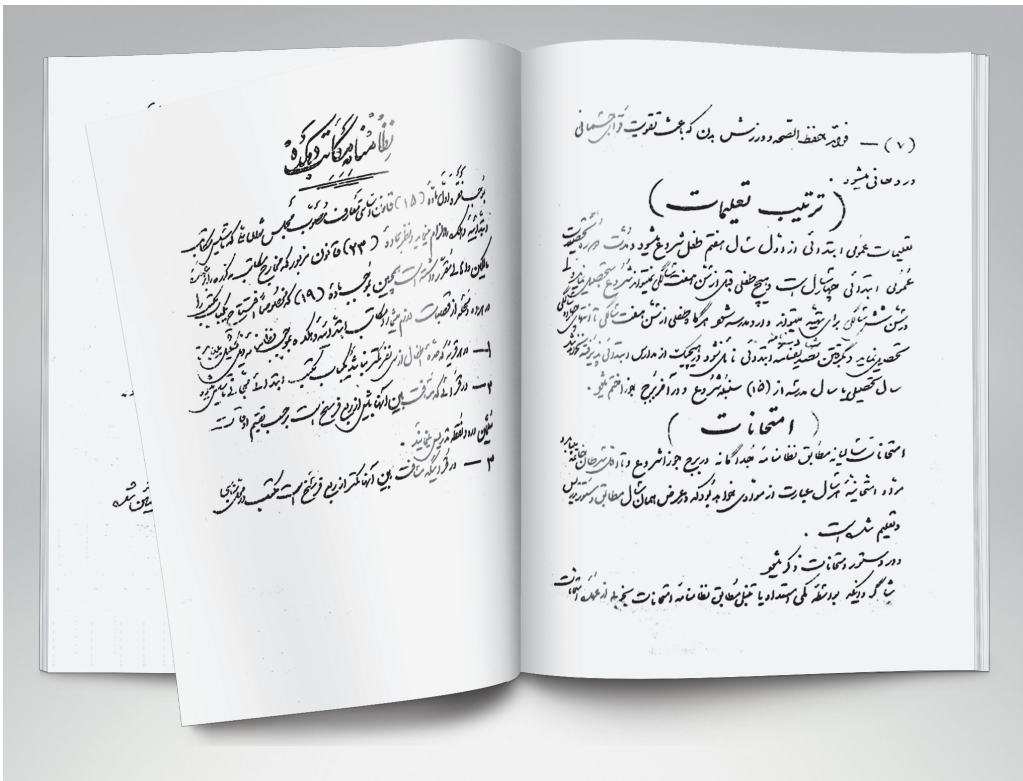 (۷) — فوائد حفظ الصحه و ورزش بدن که باعث تقویت قوای جسمانی
و روحانی میشود .
( ترتیب تعلیمات )
تعلیمات عمومی ابتدائی از اول سال هفتم طفل شروع میشود و مدت دوره تحصیلات
عمومی ابتدائی چهار سال است و هیچ طفلی قبل از سن هفت سالگی نمیتواند شروع تحصیل نماید
در سن شش سالگی برای تهیه میتواند وارد مدرسه شود هرگاه طفلی از سن هفت سالگی تا انتهای
تحصیل نماید و بگرفتن تصدیقنامه ابتدائی نائل نشود در هیچیک از مدارس ابتدائی پذیرفته نخواهد شد
سال تحصیلی یا سال مدرسه از (۱۵) سنبله شروع و در آخر برج جوزا ختم میشود .
( امتحانات )
امتحانات سالیانه مطابق نظامنامه جداگانه در برج جوزا شروع و تا اول سرطان خاتمه مییابد
مواد امتحانیه هر سال عبارت از موادی خواهد بود که در عرض همان سال مطابق دستور تدریس
و تعلیم شده است .
و در دستور امتحانات ذکر میشود
شاگردانیکه بواسطه کمی استعداد یا تنبلی مطابق نظامنامه امتحانات نتوانند از عهده امتحانات
نظامنامه مکاتب دهکده
بموجب فقره اول ماده (۱۵) قانون اساسی معارف مصوب مجلس شورای ملی که تأسیس مکاتب
ابتدائیه دهکده را الزام مینماید و نظر بماده (۲۳) قانون مزبور که مخارج مکاتب مذکوره را بعهده
مالکین و اهالی مقرر داشته است همچنین بموجب ماده (۱۹) که مخصوصاً
در هر ده و محله از قصبات لازم میشمارد مکاتب ابتدائیه دهکده بموجب نظامنامه ذیل تشکیل مییابد
۱ — در هر قریه که عده اطفال از سی نفر کمتر نباشد یکباب مکتب ابتدائی مجانی تأسیس میشود
۲ — در قرائی که مسافت بین آنها بیش از ربع فرسخ است برحسب تقسیم اوقات
معلمین در دو نقطه تدریس مینمایند .
۳ — در قرائیکه مسافت بین آنها کمتر از ربع فرسخ است مکتب در محل